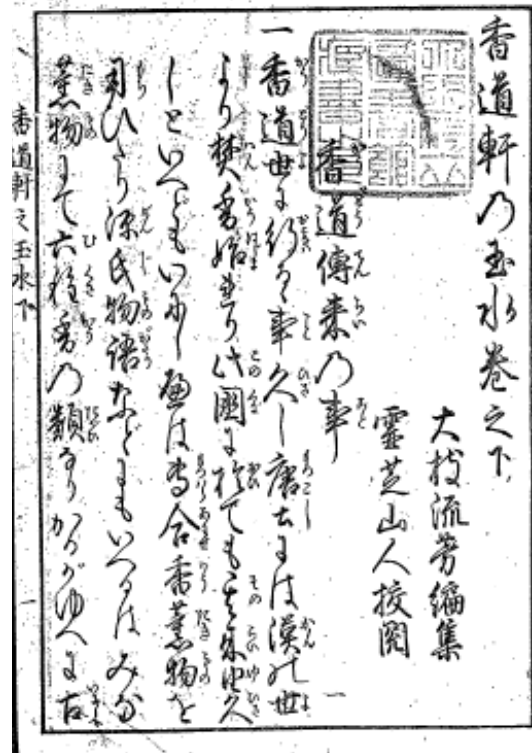 香道軒乃玉水巻之下
大枝流芳編集
霊芝山人挍閲
香道傳来乃事
一香道世に行るゝ事久し唐土には漢の世
より焚香始れり此國に於ても其来由久
しといへども いにしへは専合香薫物を
用ひたり源氏物語などにもいへるはみな
薫物にて六種香の類なり かるがゆへに古
香道軒之玉水下
一